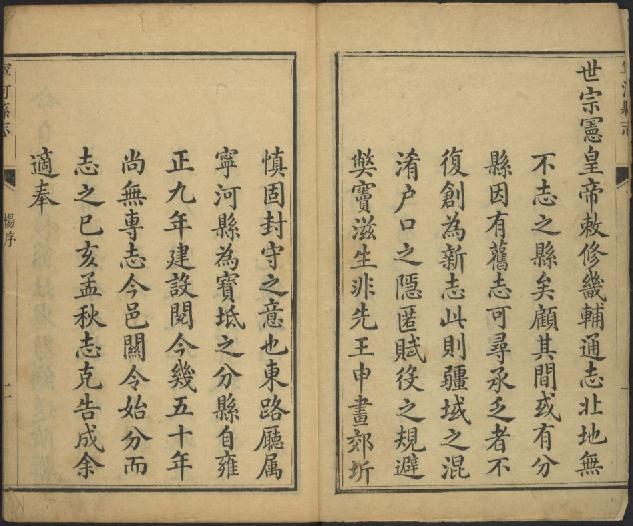 世宗憲皇帝敕修畿輔通志北地無
不志之縣矣顧其間或有分
縣因有舊志可尋承乏者不
復創為新志此則疆域之混
淆户口之隱匿賦役之規避
獘竇滋生非先王申畫郊圻
慎固封守之意也東路廳属
寧河縣為寶坻之分縣自雍
正九年建設閱今幾五十年
尚無專志今邑關令始分而
志之已亥孟秋志克告成余
適奉
寧河縣志
楊序